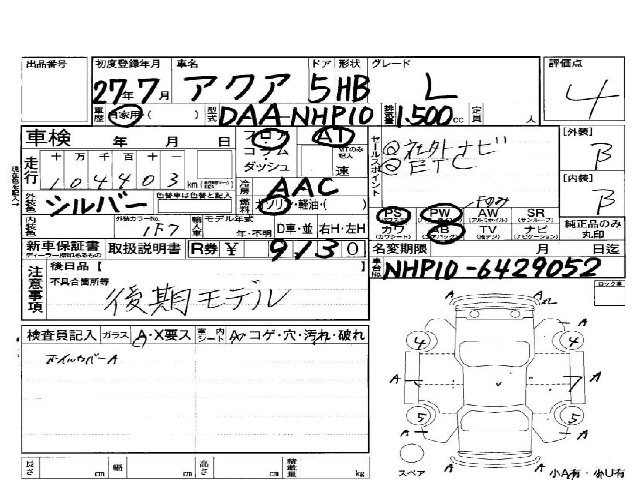 出品番号 初度登録年月 車名 ドア 形状 グレード 評価点
27年7月 アクア 5HB L 4
車歴 自家用( ) 型式 DAA-NHP10 排気量 1,500cc 定員 人
車検 年 月 日 フロア AT セールスポイント @社外ナビ [外装] B
走行 十 万 千 百 十 一 コラム MTのみ記入 @ETC
104403 km ダッシュ 速
色替車は色替と記入 冷房 AAC [内装] B
外装色 シルバー 燃料 ガソリン・軽油・( ) Fのみ
PS PW AW SR
内装色 外装カラーNo. 1F7 輸入車 モデル年式 年・不明 D車・並 右H・左H カワ AB TV ナビ 純正品のみ丸印
新車保証書 取扱説明書 R券 ¥ 9130 名変期限 月 日迄
車台No. NHP10-6429052
注意事項 後日品【 】 ロック車
不具合箇所等
後期モデル
検査員記入 ガラス A・X要ス 車内シート A・コゲ・穴・汚れ・破れ
ホイルカバーA
4 4
A A 7 A
5 5
A A
長さ cm 幅 cm 高さ cm 積載量 kg スペア 小A有・小U有